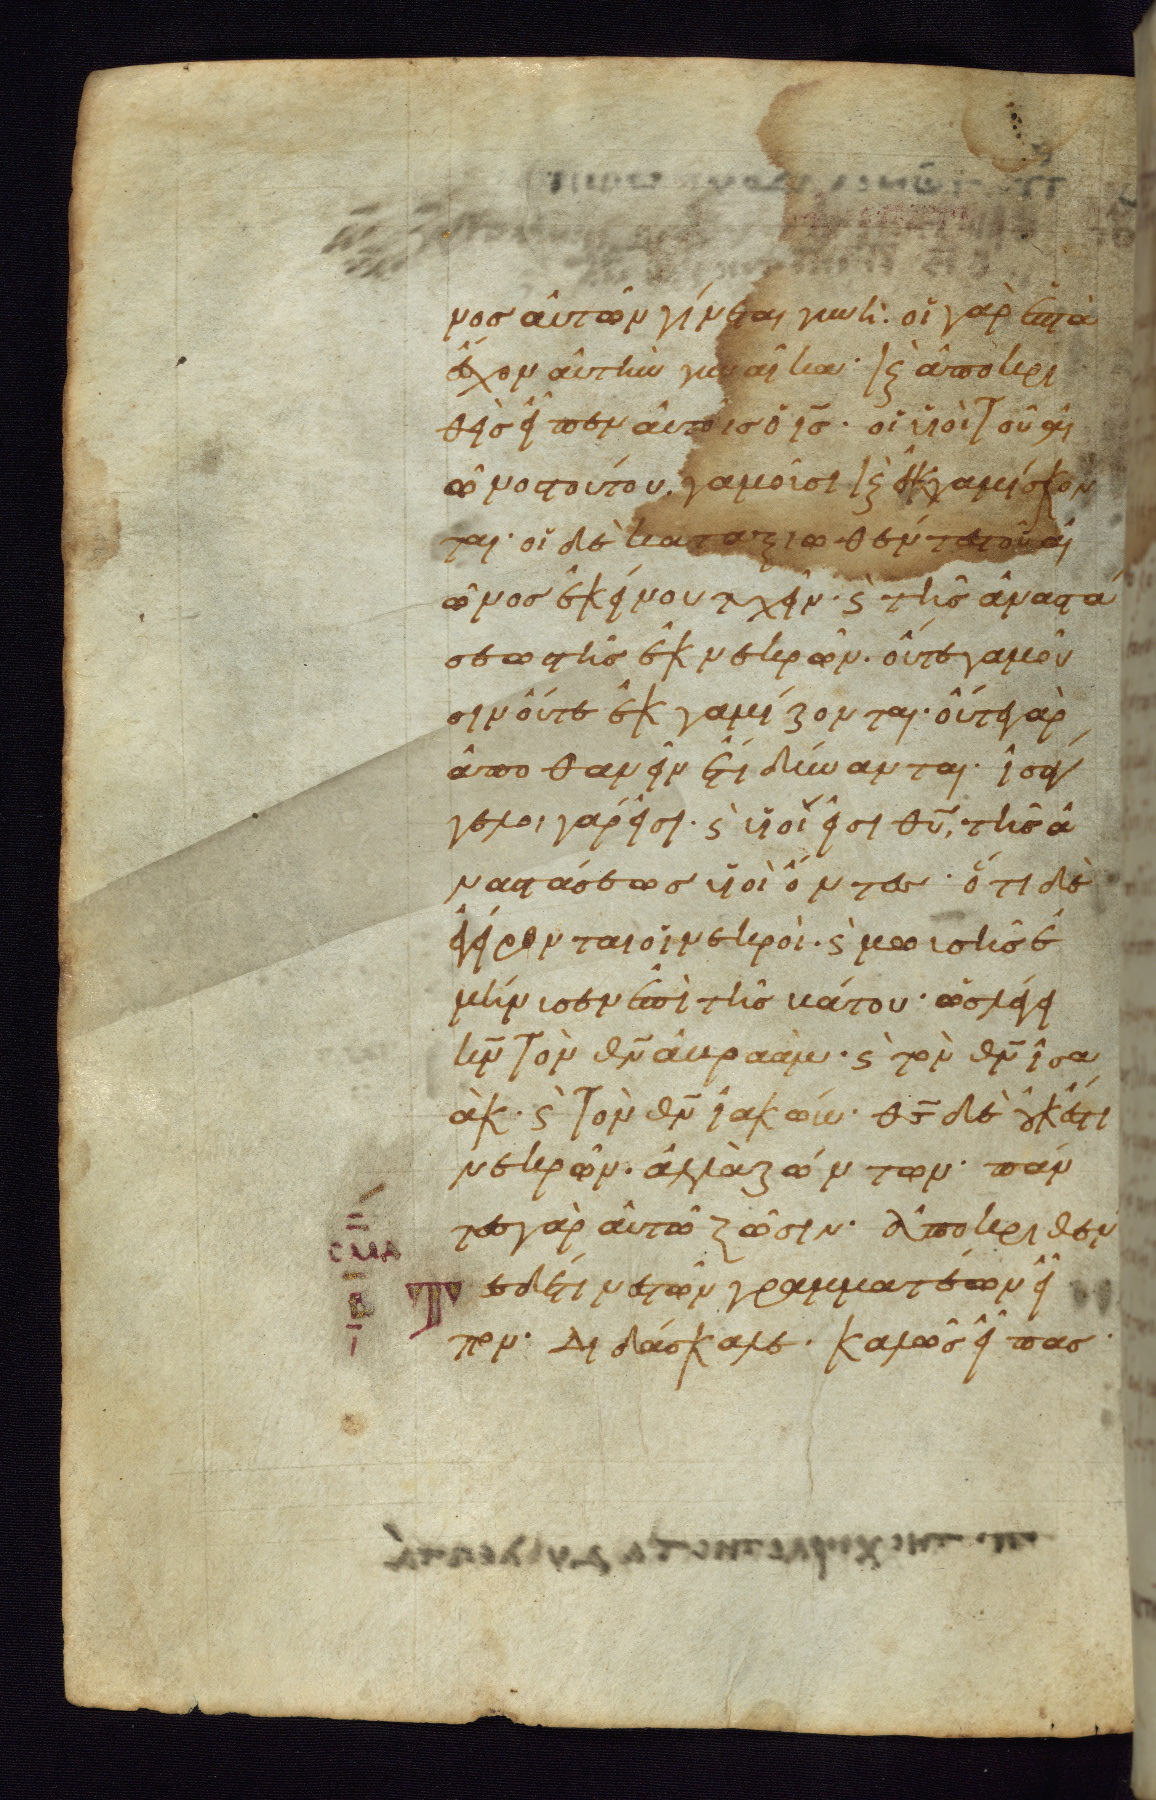 νος αὐτῶν γίνεται γυνή· οἱ γὰρ ἑπτὰ
ἔσχον αὐτὴν γυναῖκα· καὶ ἀποκρι
θεὶς εἶπεν αὐτοῖς ὁ ις̄· οἱ υἱοὶ τοῦ αἰ
ῶνος τούτου, γαμοῦσι καὶ ἐκγαμίσκον
ται· οἱ δὲ καταξιωθέντες τοῦ αἰ
ῶνος ἐκείνου τυχεῖν· καὶ τῆς ἀναστά
σεως τῆς ἐκ νεκρῶν· οὔτε γαμοῦ
σιν οὔτε ἐκγαμίζονται· οὔτε γὰρ
ἀποθανεῖν ἔτι δύνανται· ἰσάγ
γελοι γάρ εἰσι· καὶ υἱοί εἰσι θῡ, τῆς ἀ
ναστάσεως υἱοὶ ὄντες· ὅτι δὲ
ἐγείρονται οἱ νεκροὶ· καὶ μωσῆς ἐ
μήνυσεν ἐπὶ τῆς βάτου· ὡς λέγει
κν̄ τὸν θν̄ ἀβραάμ· καὶ τὸν θν̄ ἰσα
άκ· καὶ τὸν θν̄ ἰακώβ· θς̄ δὲ οὐκ ἔστι
νεκρῶν· ἀλλὰ ζώντων· πάν
τες γὰρ αὐτῶ ζῶσιν· ἀποκριθέν
τες δέ τινες τῶν γραμματέων εἶ
πον· διδάσκαλε· καλῶς εἶπας·
σμα
β
ι